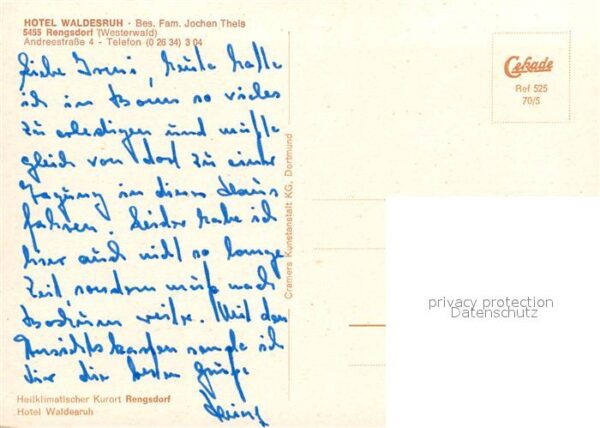 HOTEL WALDESRUH · Bes. Fam. Jochen Theis
5455 Rengsdorf (Westerwald)
Andreestraße 4 - Telefon (0 26 34) 3 04
Liebe Irmi, heute hatte
ich in Bonn so vieles
zu erledigen und mußte
gleich von dort zu einer
Tagung in diesem Haus
fahren. Leider habe ich
hier auch nicht so lange
Zeit, sondern muß nach
Bochum weiter. Mit den
Ansichtskarten sende ich
dir die besten Grüße
Heinz
Heilklimatischer Kurort Rengsdorf
Hotel Waldesruh
Cramers Kunstanstalt KG, Dortmund
Cekade
Ref 525
70/5
privacy protection
Datenschutz